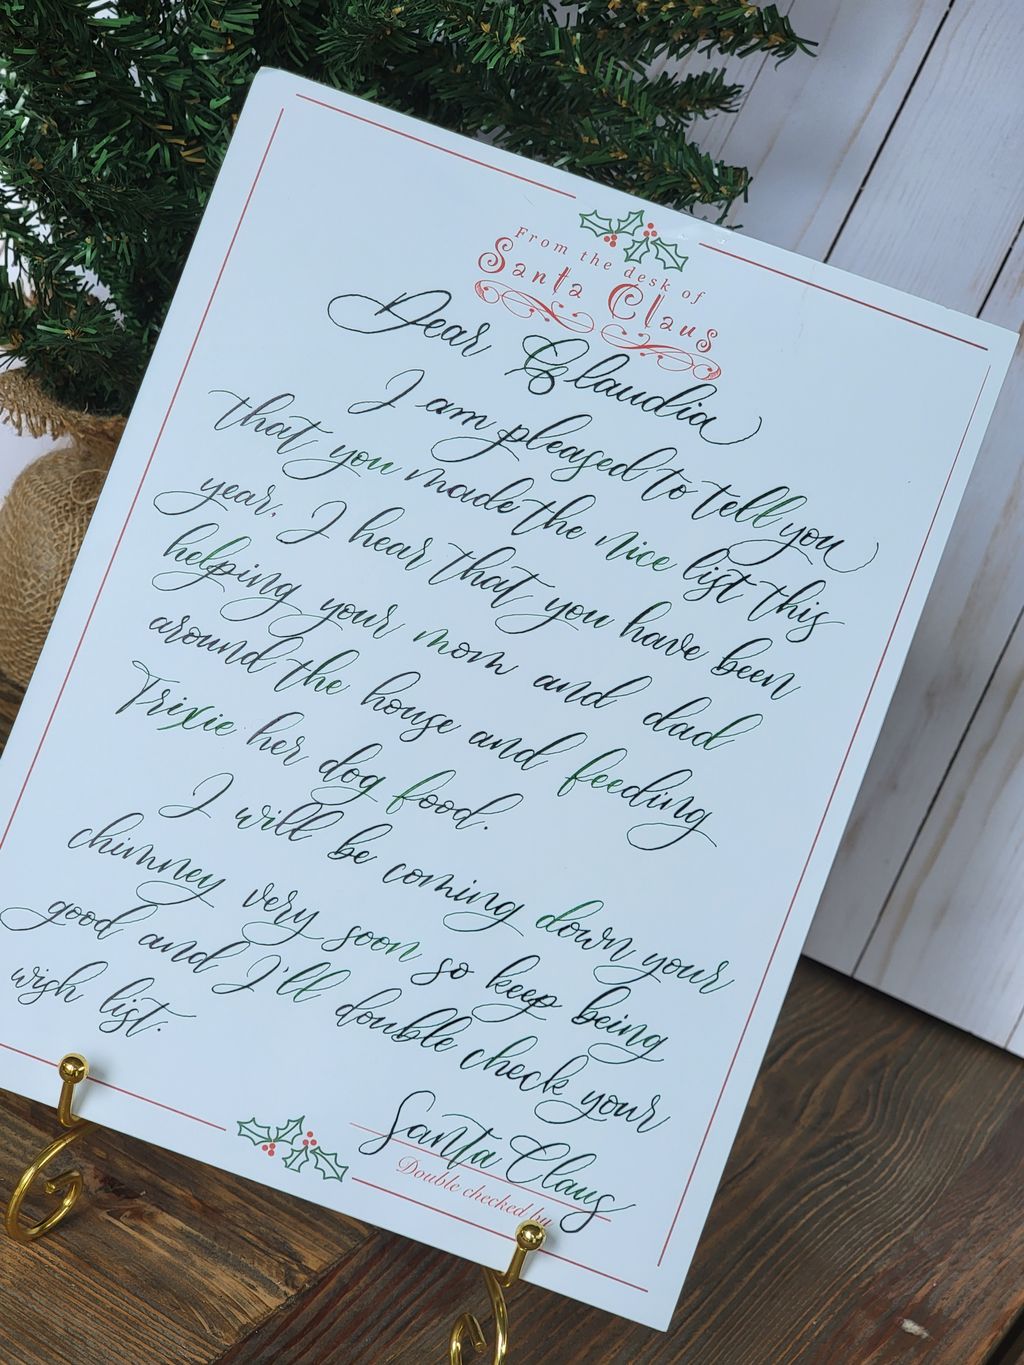 From the desk of
Santa Claus
Dear Claudia
I am pleased to tell you
that you made the nice list this
year. I hear that you have been
helping your mom and dad
around the house and feeding
Trixie her dog food.
I will be coming down your
chimney very soon so keep being
good and I'll double check your
wish list.
Santa Claus
Double checked by